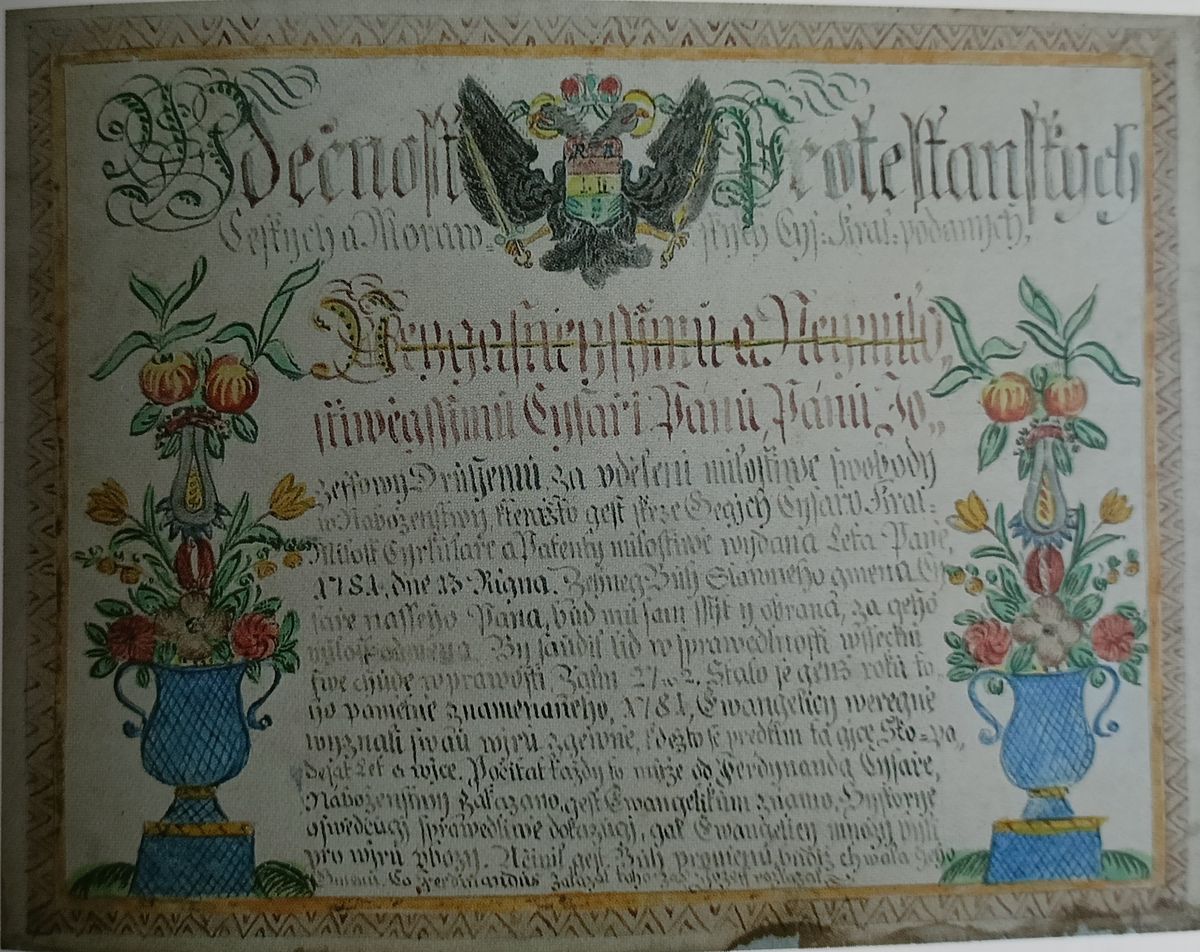 Wděčnost Protestanských
Cžeskych a Moraw- skych Cys: Kral: podaných,
Neygasniegssimu a Neymilo„
stiwěgssimu Cysaři Pánu, Pánu Jo„
zeffowy Druhemu za vdeleni milostiwe swobody
w Naboženstwy, kteražto gest skrze Gegich Cysařů Kral-
Milost Cyrkulaře a Patenty milostiwě wydana Leta Paně,
1781, dne 13 Rigna. Žehneg Bůh Slawneho gmena Cy
saře nasseho Pana, bud mu sam sstjt y obrana, za geho
milost odměna. By saudil lid w sprawedlnosti wssecku
swe chude w prawosti Žalm 27. w. 2. Stalo se genž roku to
ho pamětně znamenaneho, 1781, Ewangelicy weregně
wyznali swau wjru zgewně, kdežto se předkim ta gjcę Sto-pa,
desat Let a wjce. Počitat každy to může od Ferdynanda Cysaře,
Naboženstwy zakazano, gest Ewangelikum znamo. Hystorye
oswědčugj sprawedliwe dokazugj, gak Ewangelicy mnozy byli
pro wjru vbozy. Včinil gest Bůh proměnu, budiž chwala geho
Gmenu. Co Ferdinandus zakazal toho zas Jozeff